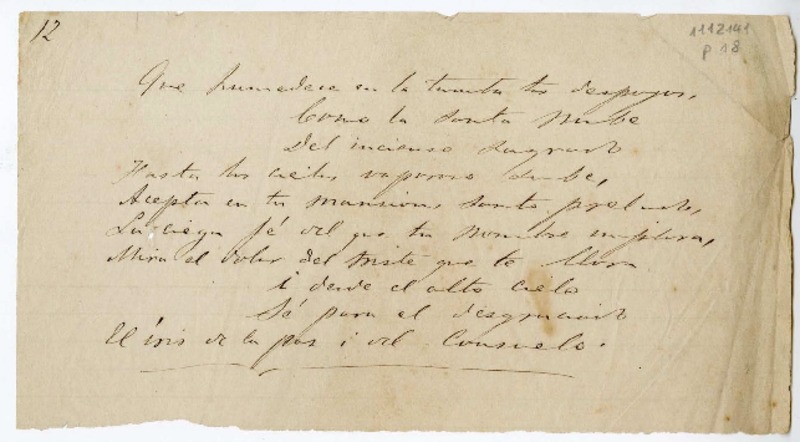 12
1112141
p 18
Que humedece en la tumba tus despojos,
Como la santa nube
Del incienso sagrado
Hasta los cielos vaporoso sube,
Acepta en tu mansion, santo prelado,
La ciega fé del que tu nombre implora,
Mira el dolor del triste que te llora
i desde el alto cielo
Sé para el desgraciado
El íris de la paz i del Consuelo.